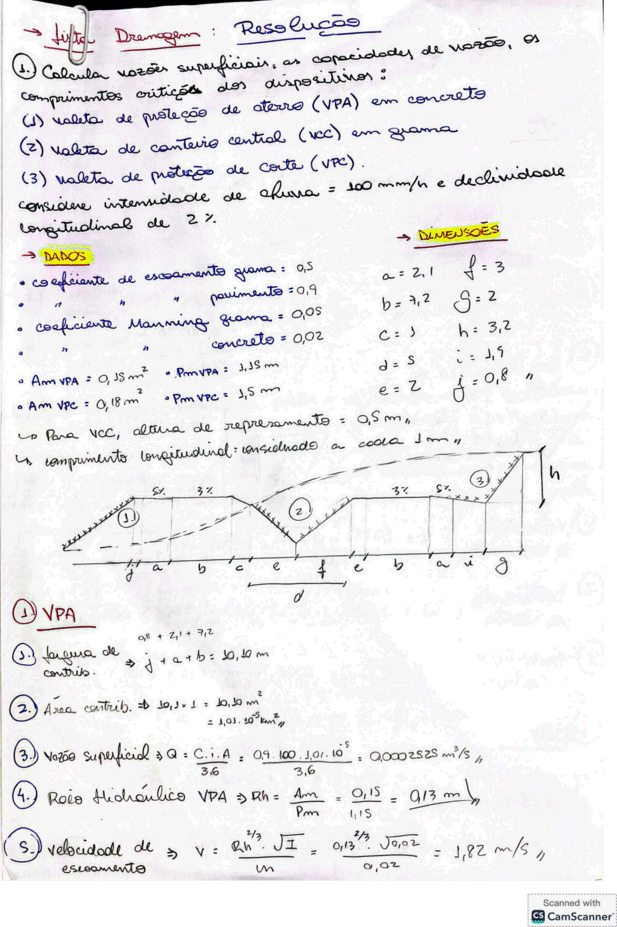 → Lista Drenagem : Resolução
1. Calcula vazões superficiais, as capacidades de vazão, os
comprimentos críticos dos dispositivos :
(1) valeta de proteção de aterro (VPA) em concreto
(2) valeta de canteiro central (VCC) em grama
(3) valeta de proteção de corte (VPC).
considere intensidade de chuva = 100 mm/h e declividade
longitudinal de 2 %.
→ DADOS
• coeficiente de escoamento grama : 0,5
• " " " pavimento = 0,9
• coeficiente Manning grama = 0,05
• " " concreto = 0,02
• Am VPA = 0,15 m² • Pm VPA = 1,15 m
• Am VPC = 0,18 m² • Pm VPC = 1,5 m
→ DIMENSOÊS
a = 2,1 f = 3
b = 7,2 g = 2
c = 1 h = 3,2
d = 5 i = 1,9
e = 2 j = 0,8 "
↳ Para VCC, altura de represamento = 0,5 m "
↳ comprimento longitudinal : considerado a cada 1 m "
5% 3% 3% 5%
1 2 3 h
j a b c e f c b a i g
d
1 VPA
0,8 + 2,1 + 7,2
1. largura de ⇒ j + a + b = 10,10 m
contrib.
2. Área contrib. ⇒ 10,1 x 1 = 10,10 m²
= 1,01 . 10⁻⁵ km² "
3. Vazão superficial ⇒ Q = C.i.A / 3,6 = 0,9 . 100 . 1,01 . 10⁻⁵ / 3,6 = 0,0002525 m³/s "
4. Raio Hidráulico VPA ⇒ Rh = Am / Pm = 0,15 / 1,15 = 0,13 m "
5. velocidade de ⇒ V = Rh^2/3 . √I / n = 0,13^2/3 . √0,02 / 0,02 = 1,82 m/s "
escoamento
Scanned with
CS CamScanner